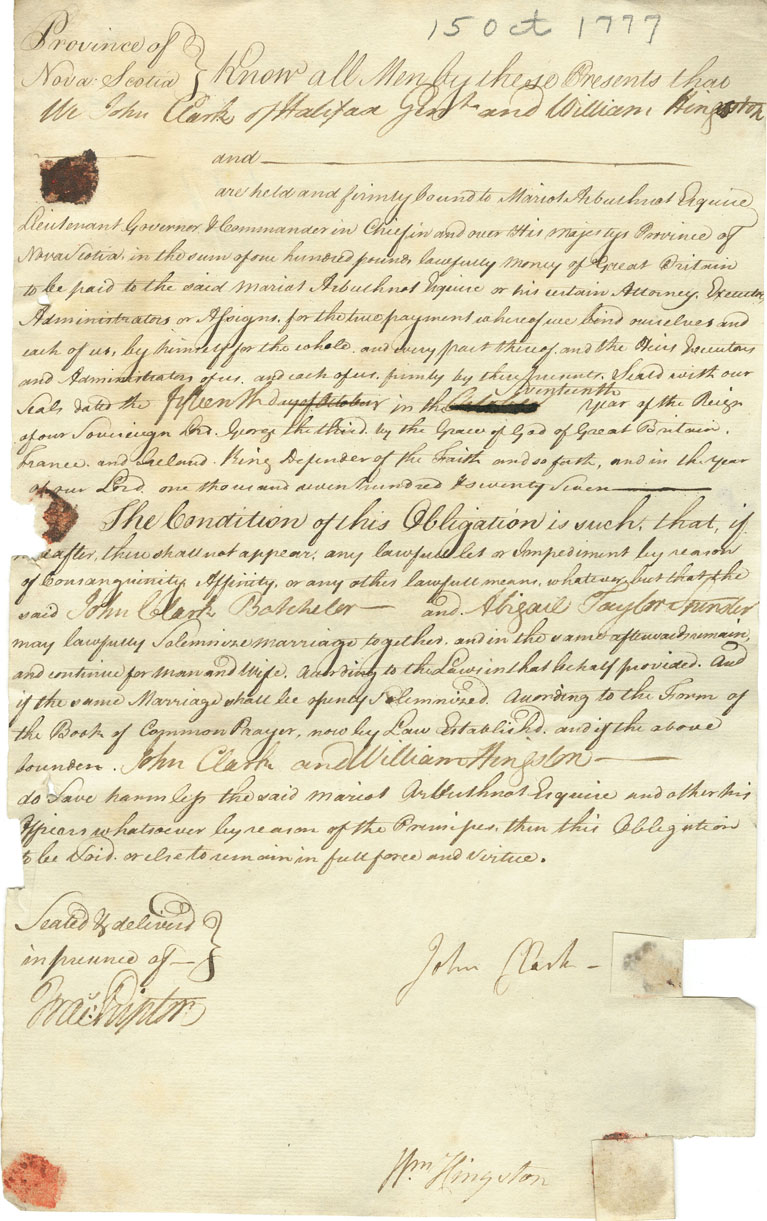 15 Oct 1777
Province of
Nova Scotia } Know all Men by these Presents that
We John Clark of Halifax Gent and William Hingston
and
are held and firmly bound to Mariot Arbuthnot Esquire
Lieutenant Governor & Commander in Chief in and over His Majestys Province of
Nova Scotia in the sum of one hundred pounds lawfully Money of Great Britain
to be paid to the said Mariot Arbuthnot Esquire or his certain Attorney, Executor
Administrators or Assigns, for the true payment whereof we bind ourselves and
each of us, by himself for the whole and every part thereof and the Heirs Executors
and Administrators of us, and each of us, firmly by these presents, Sealed with our
Seals dated the fifteenth day of October in the Seventeenth Year of the Reign
of our Sovereign Lord George the third by the Grace of God of Great Britain,
France, and Ireland, King Defender of the Faith and so forth, and in the year
of our Lord one thousand seven hundred & seventy Seven
The Condition of this Obligation is such, that, if
after, there shall not appear, any lawfull let or Impediment by reason
of Consanguinity, Affinity, or any other lawfull means, whatever but that the
said John Clark Batcheler and Abigail Taylor
may lawfully Solemnize Marriage together, and in the same afterwards remain,
and continue for Man and Wife, Acording to the Laws in that behalf provided. And
if the same Marriage shall be openly Solemnized, Acording to the Form of
the Book of Common Prayer, now by Law Established, and if the above
bounden John Clark and William Hingston
do Save harmless the said Mariot Arbuthnot Esquire and other his
Officers whatsoever by reason of the Premises, then this Obligation
to be Void, or else to remain in full force and Virtue.
Sealed & deliverd
in presence of } John Clark
Wm Hingston